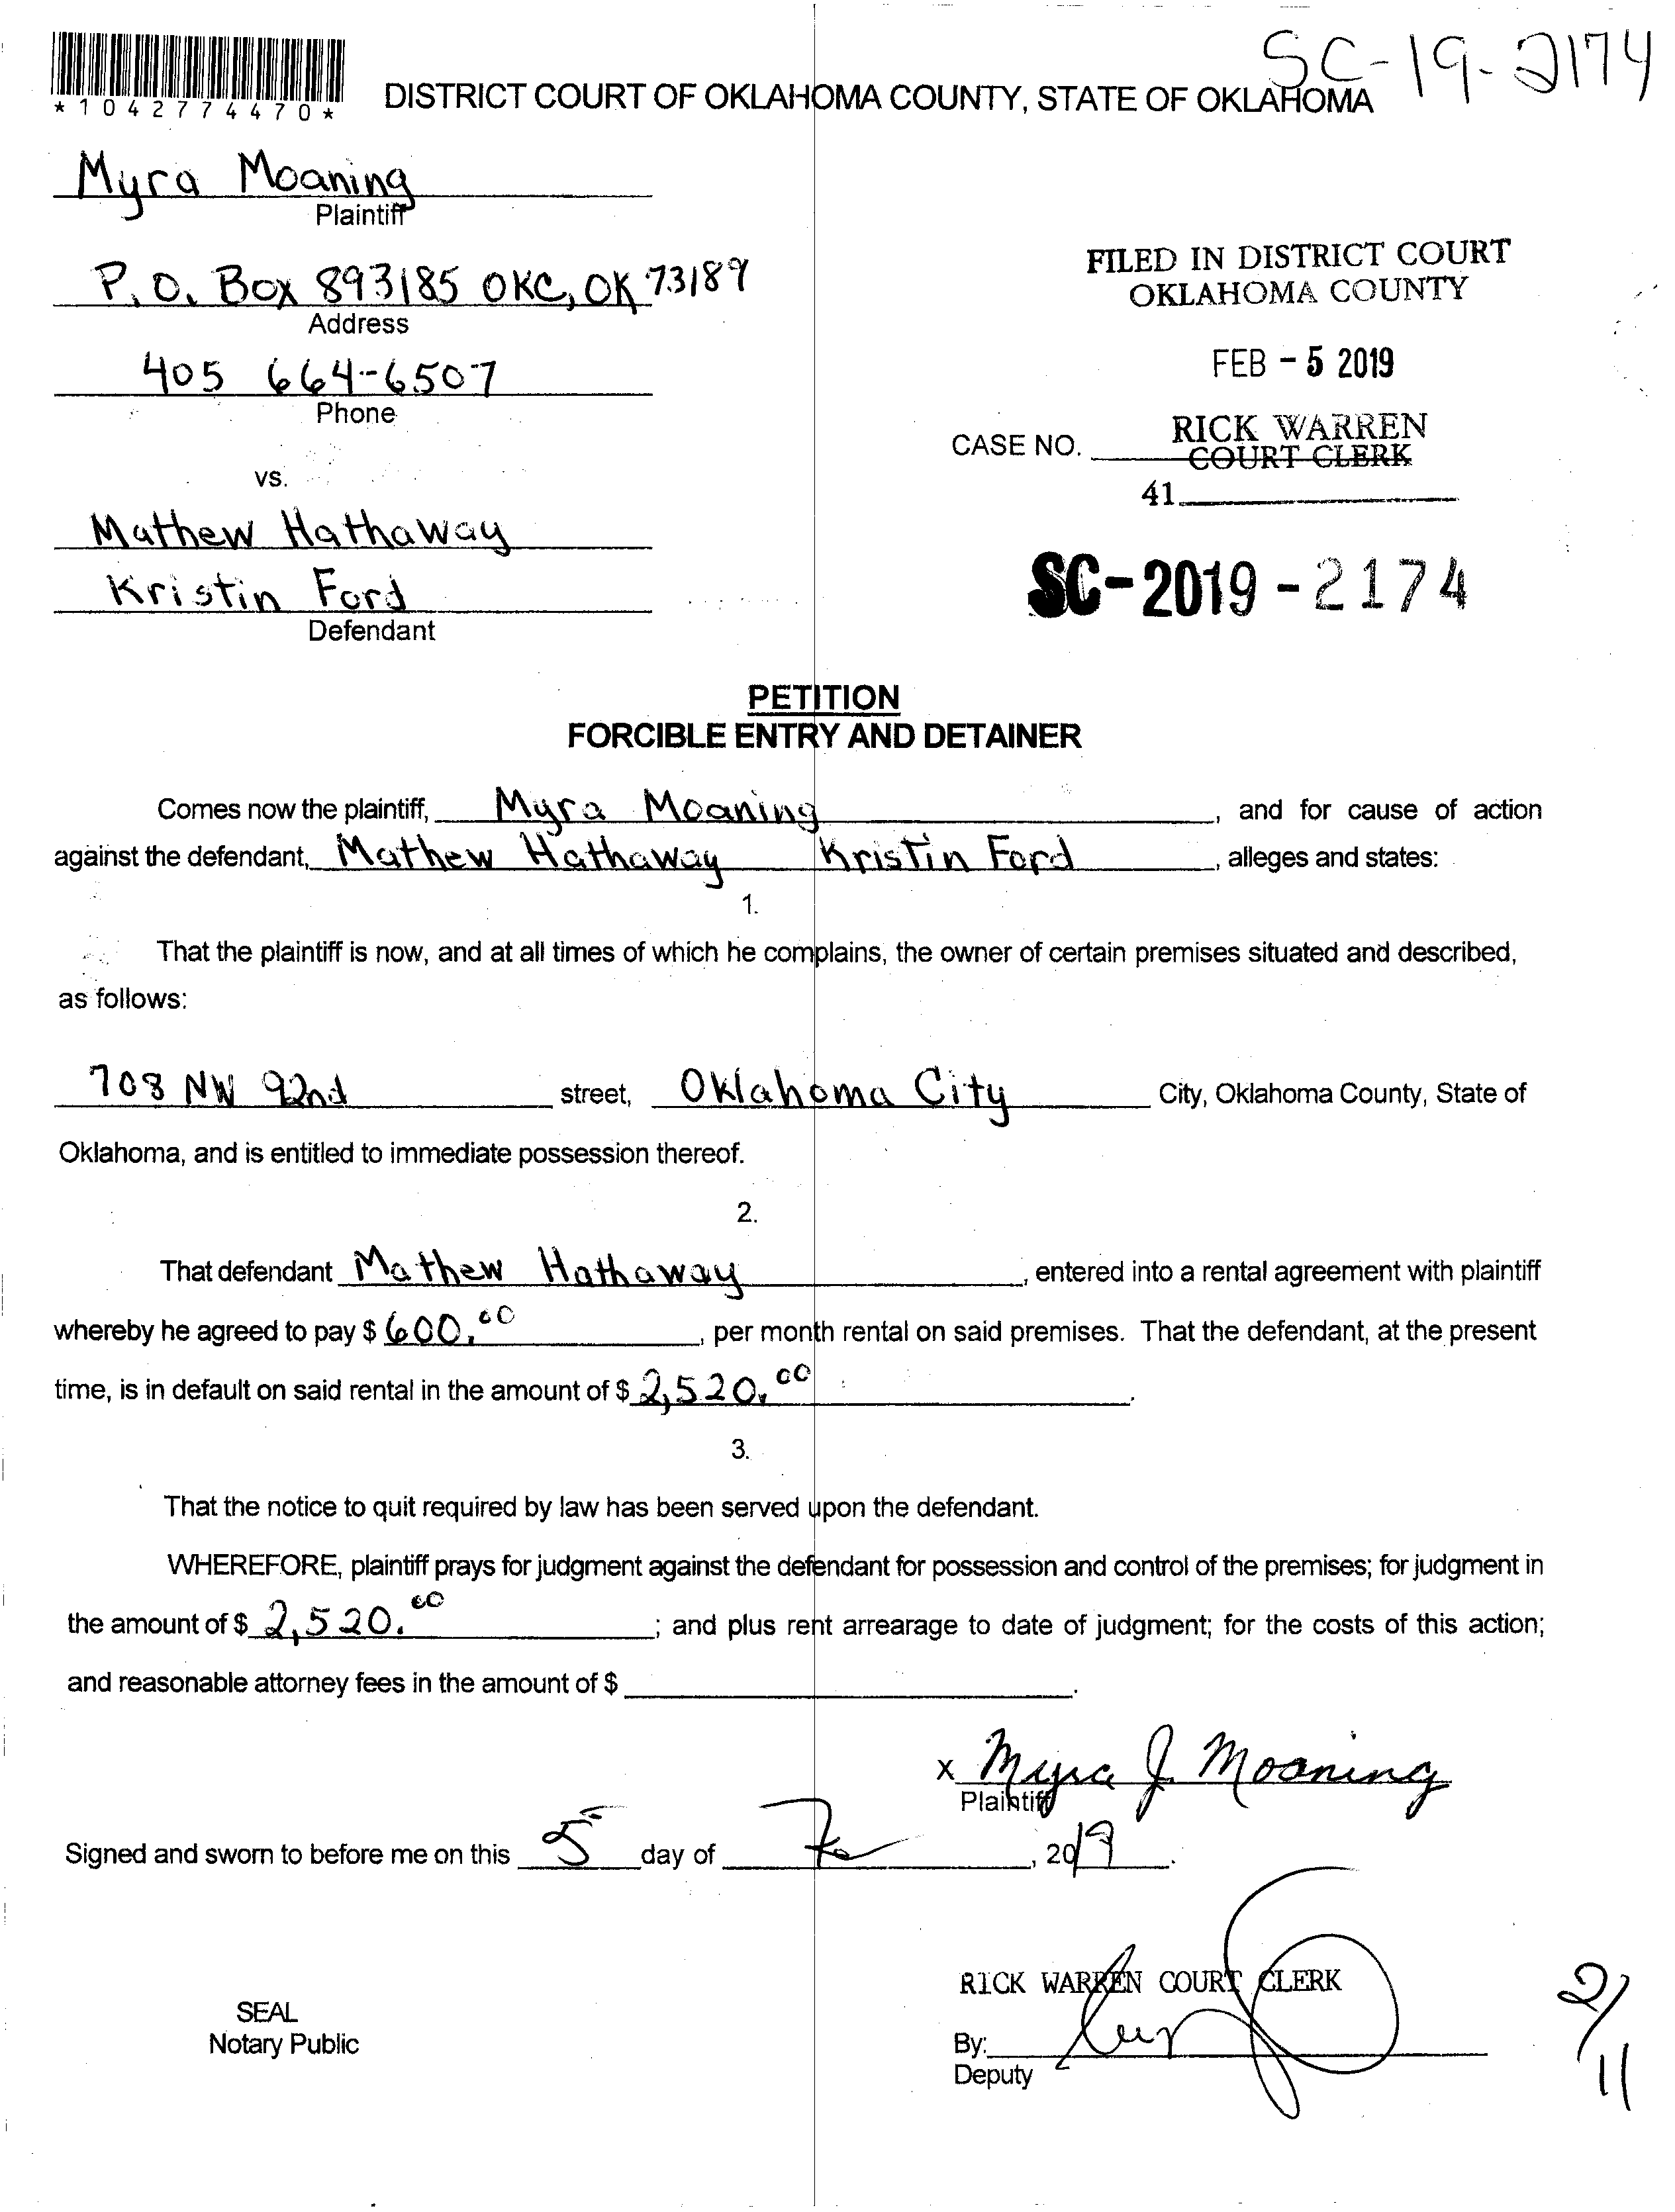 SC-19-2174
*1042774470*
DISTRICT COURT OF OKLAHOMA COUNTY, STATE OF OKLAHOMA
Myra Moaning
Plaintiff
P.O. Box 893185 OKC, OK 73189
Address
405 664-6507
Phone
vs.
Mathew Hathaway
Kristin Ford
Defendant
FILED IN DISTRICT COURT
OKLAHOMA COUNTY
FEB - 5 2019
RICK WARREN
CASE NO. COURT CLERK
41
SC-2019-2174
PETITION
FORCIBLE ENTRY AND DETAINER
Comes now the plaintiff, Myra Moaning, and for cause of action
against the defendant, Mathew Hathaway Kristin Ford, alleges and states:
1.
That the plaintiff is now, and at all times of which he complains, the owner of certain premises situated and described,
as follows:
708 NW 92nd street, Oklahoma City City, Oklahoma County, State of
Oklahoma, and is entitled to immediate possession thereof.
2.
That defendant Mathew Hathaway, entered into a rental agreement with plaintiff
whereby he agreed to pay $ 600.00, per month rental on said premises. That the defendant, at the present
time, is in default on said rental in the amount of $ 2,520.00.
3.
That the notice to quit required by law has been served upon the defendant.
WHEREFORE, plaintiff prays for judgment against the defendant for possession and control of the premises; for judgment in
the amount of $ 2,520.00; and plus rent arrearage to date of judgment; for the costs of this action;
and reasonable attorney fees in the amount of $ .
x Myra J. Moaning
Plaintiff
Signed and sworn to before me on this 5 day of , 2019.
RICK WARREN COURT CLERK
SEAL
Notary Public
By:
Deputy
2/11